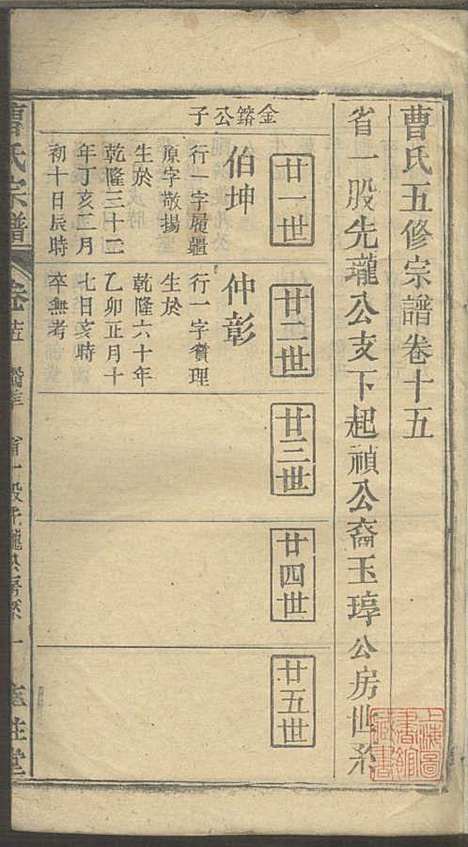 曹氏五修宗譜卷十五
省一股先瓏公支下起禎公裔玉㻿公房世系
上海圖書館藏書
廿一世
廿二世
廿三世
廿四世
廿五世
金鎔公子
伯坤
行一字履疆
原字敬揚
生於
乾隆三十二
年丁亥三月
初十日辰時
仲彰
行一字賓理
生於
乾隆六十年
乙卯正月十
七日亥時
卒無考
曹氏宗譜
卷十五
省一股先瓏公房系
一